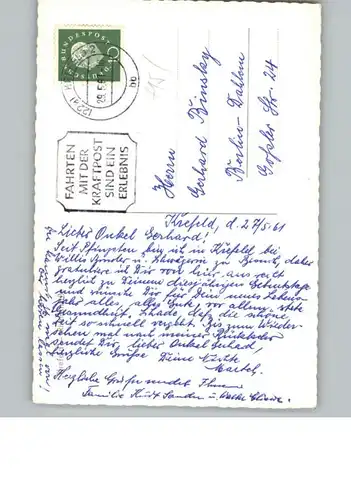 DEUTSCHE BUNDESPOST
10
(22a)
29.5.61
FAHRTEN
MIT DER
KRAFTPOST
SIND EIN
ERLEBNIS
Herrn
Gerhard Binsky
Berlin-Dahlem
Goßler Str. 24
Krefeld, d. 27/5.61
Lieber Onkel Gerhard!
Seit Pfingsten bin ich in Krefeld bei
Willis Bruder u. Schwägerin zu Besuch, daher
gratuliere ich Dir von hier aus recht
herzlich zu Deinem diesjährigen Geburtstage
und wünsche Dir für Dein neues Lebens-
jahr alles, alles Gute, vor allem, stets
Gesundheit. Schade, daß die schöne
Zeit so schnell vergeht. Bis zum Wieder-
sehen mal nach meiner Rückkehr
sendet Dir, lieber Onkel Gerhard,
herzliche Grüße Deine Nichte
Herzliche Grüße sendet Ihnen
Familie Kurt Sander